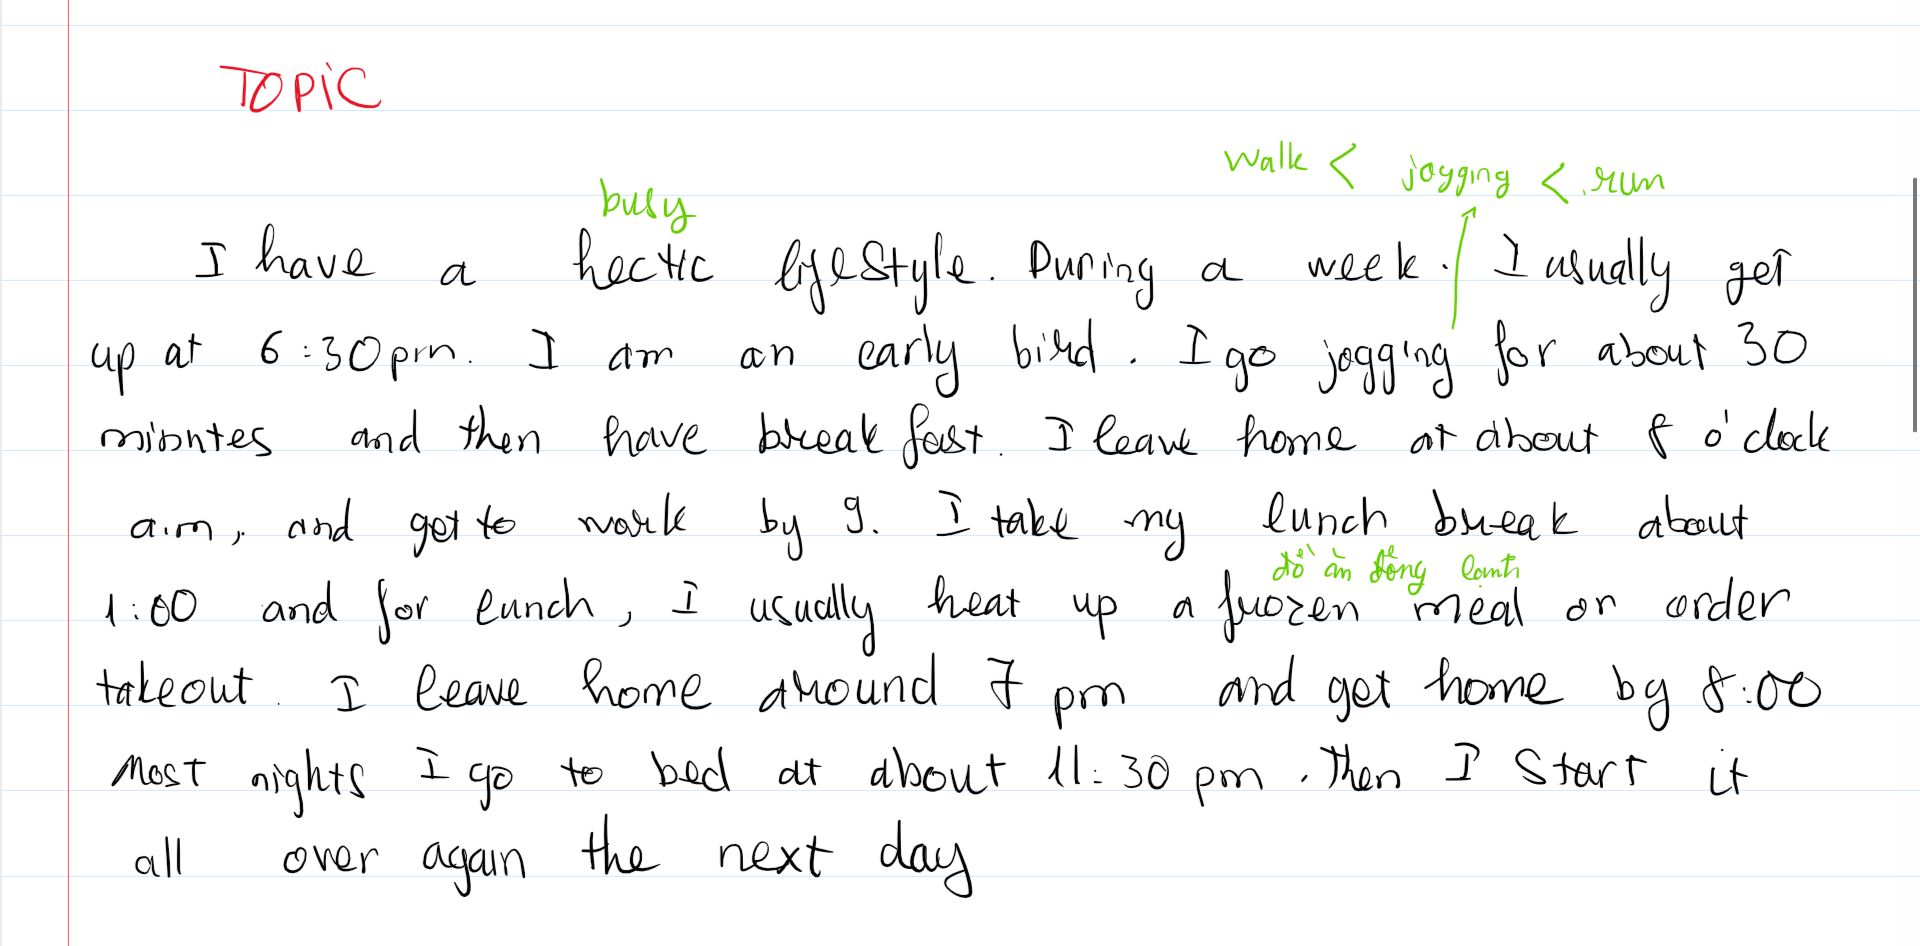 TOPIC
walk < jogging < run
busy
I have a hectic lifestyle. During a week. I usually get
up at 6:30pm. I am an early bird. I go jogging for about 30
minntes and then have breakfast. I leave home at about 8 o'clock
a.m, and get to work by 9. I take my lunch break about
đồ ăn đông lanh
1:00 and for lunch, I usually heat up a frozen meal or order
takeout. I leave home around 7 pm and get home by 8:00
Most nights I go to bed at about 11:30 pm. Then I start it
all over again the next day